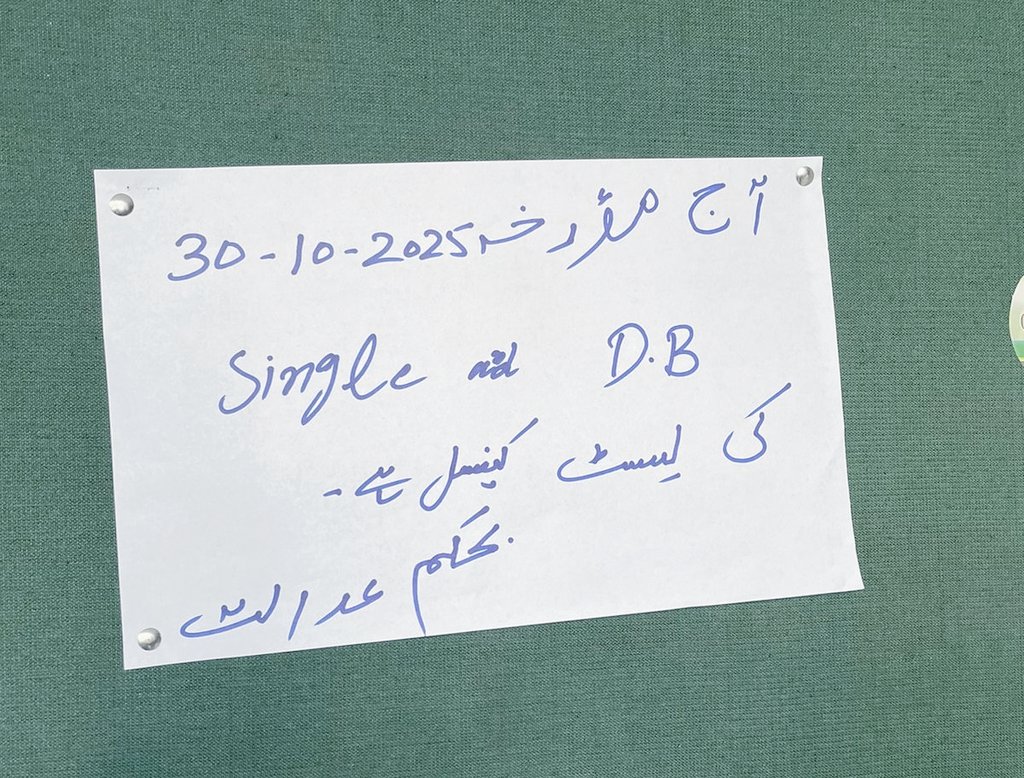 آج مؤرخہ 30-10-2025
Single اور D.B
کی لیسٹ کینسل ہے۔
بحکم عدالت